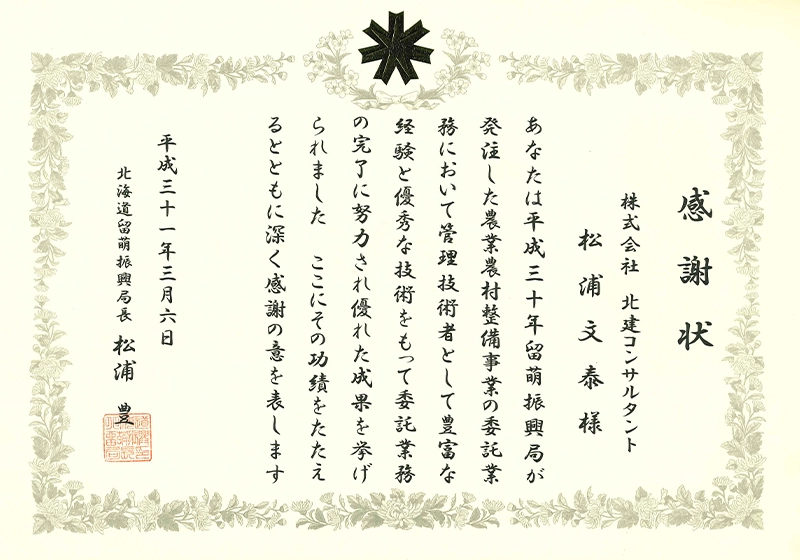 感謝状
株式会社 北建コンサルタント
松浦文泰様
あなたは平成三十年留萌振興局が
発注した農業農村整備事業の委託業
務において管理技術者として豊富な
経験と優秀な技術をもって委託業務
の完了に努力され優れた成果を挙げ
られました ここにその功績をたたえ
るとともに深く感謝の意を表します
平成三十一年三月六日
北海道留萌振興局長 松浦 豊